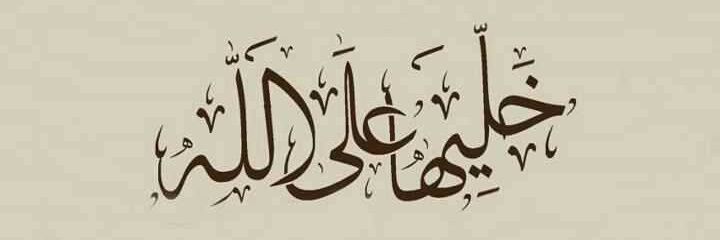 خَلِّيهَا عَلَى اللَّه